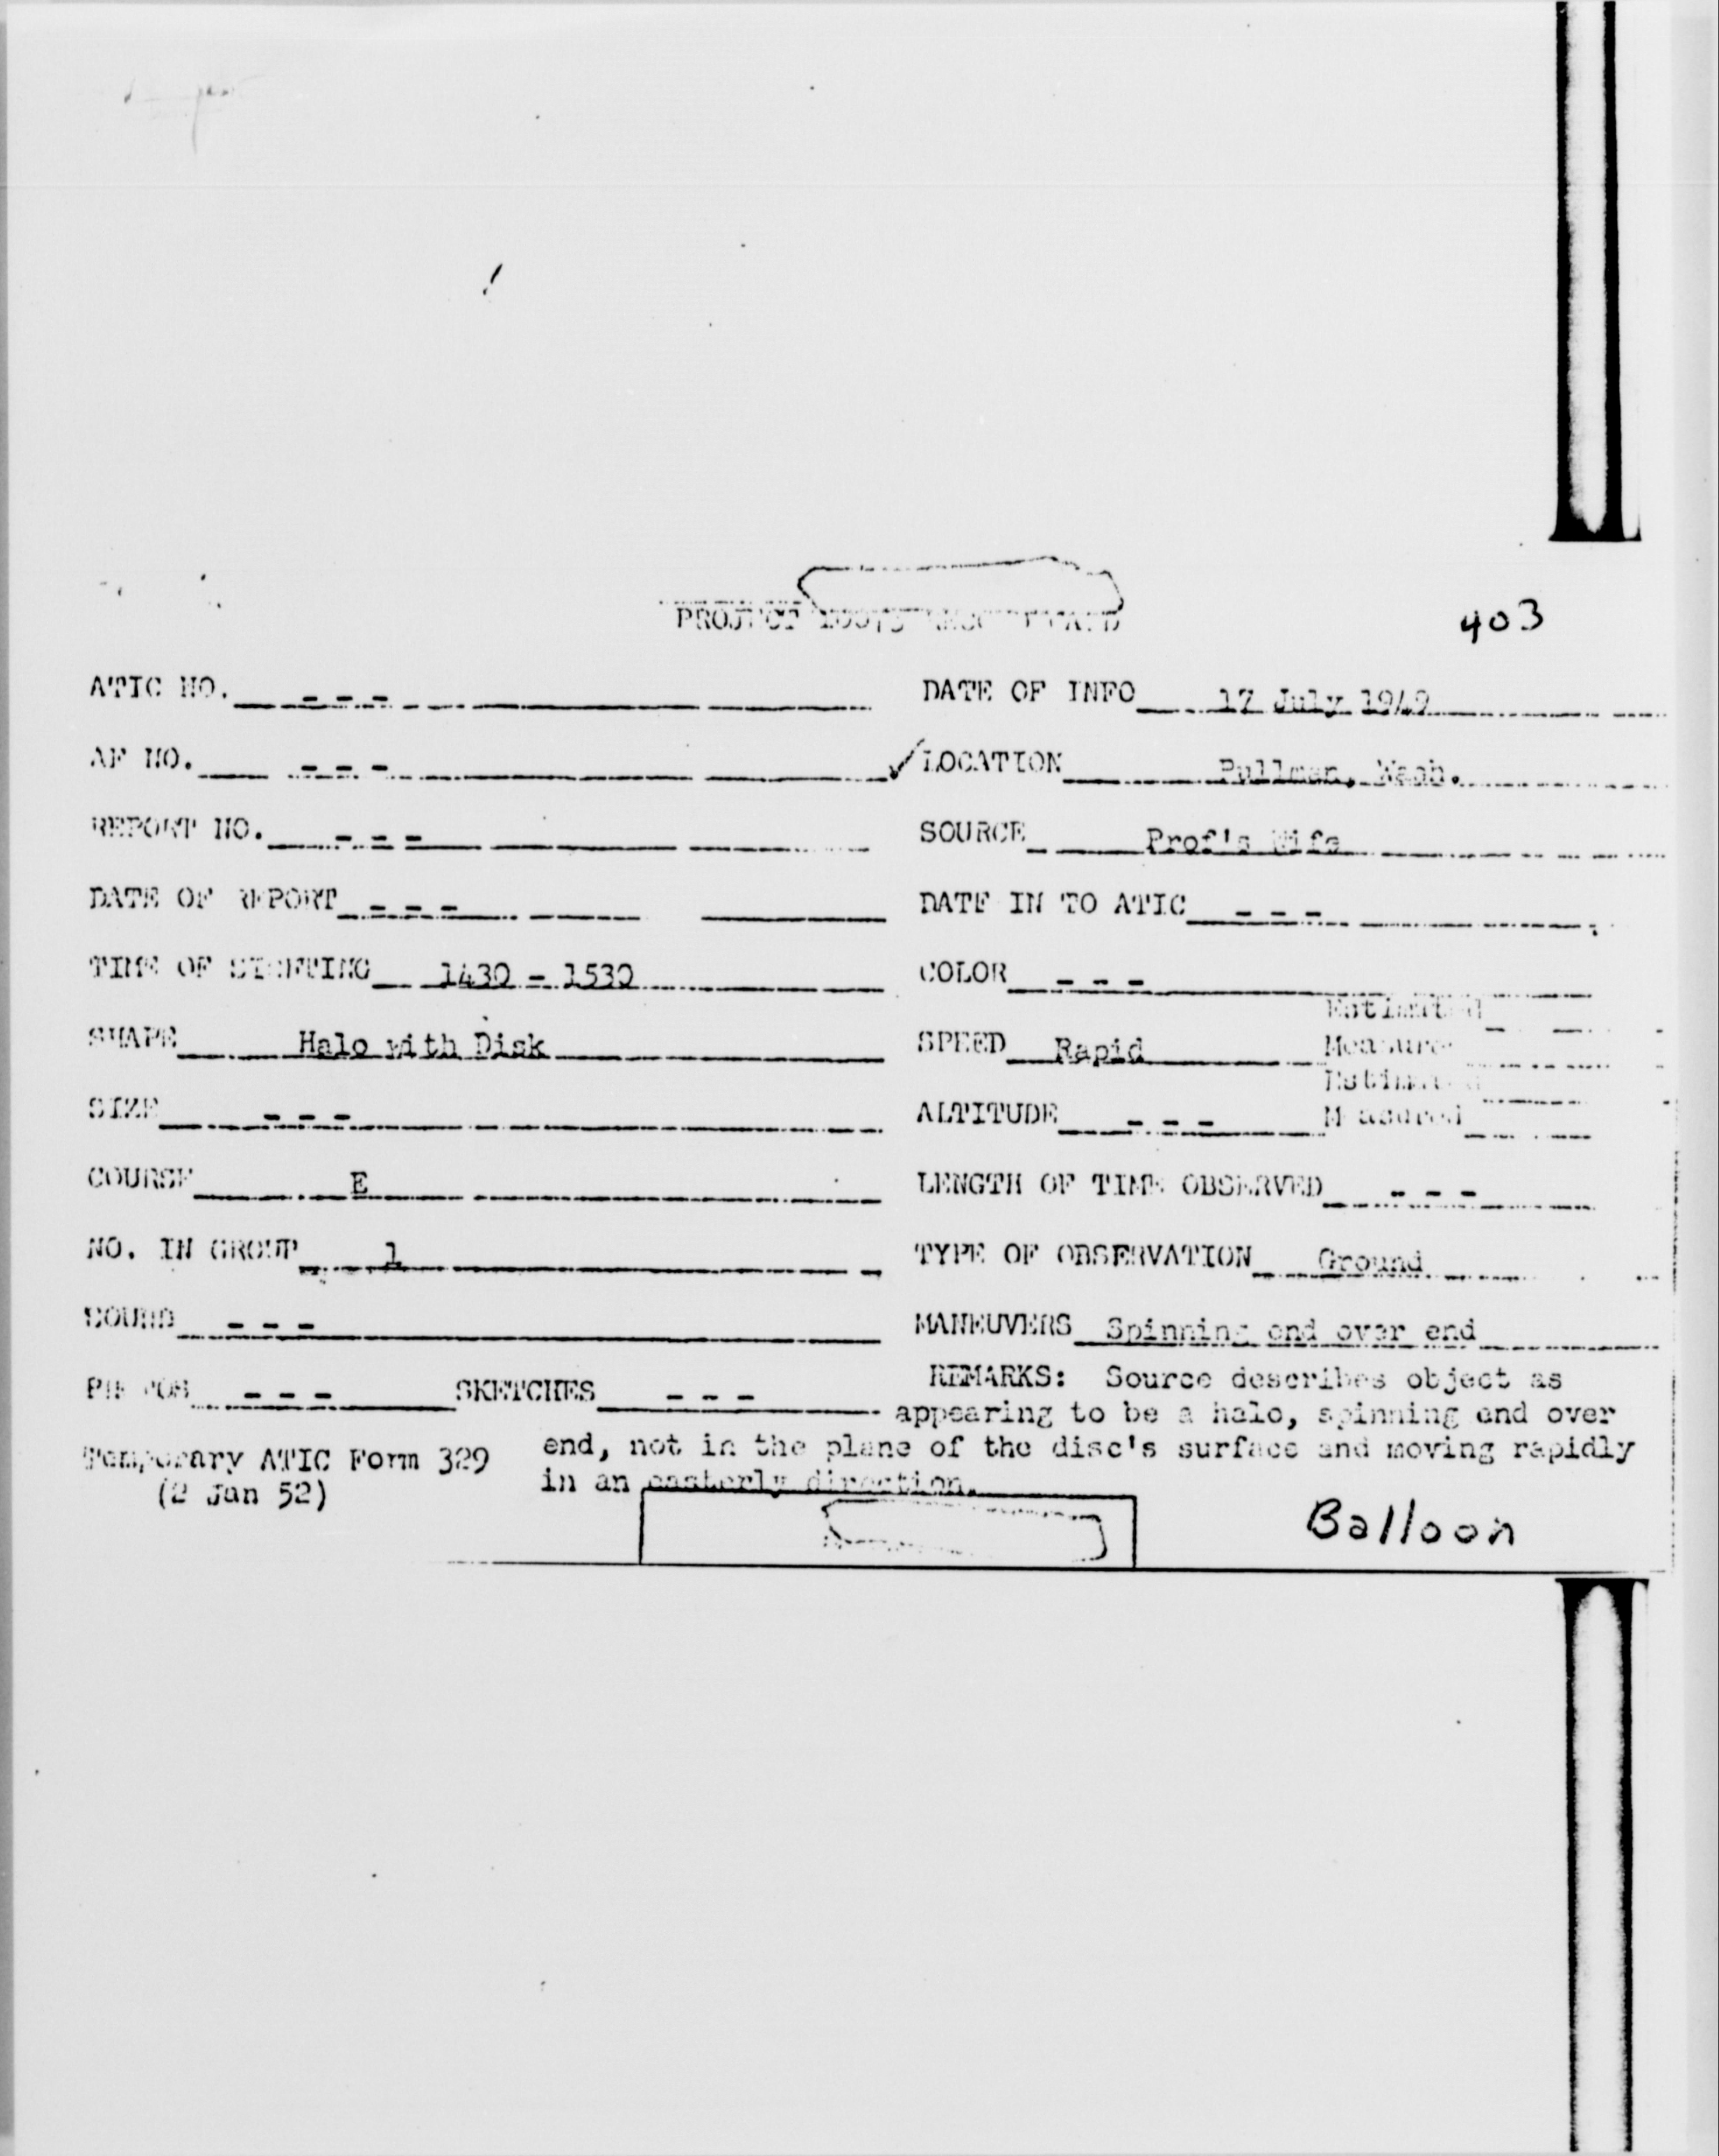 PROJECT 10073 RECORD CARD
403
ATIC NO. - - - DATE OF INFO 17 July 1949
AF NO. - - - ✓ LOCATION Pullman, Wash.
REPORT NO. - - - SOURCE Prof's Wife
DATE OF REPORT - - - DATE IN TO ATIC - - -
TIME OF SIGHTING 1430 - 1530 COLOR - - -
SHAPE Halo with Disk SPEED Rapid Estimated
Measured
SIZE - - - ALTITUDE - - - Estimated
Measured
COURSE E LENGTH OF TIME OBSERVED - - -
NO. IN GROUP 1 TYPE OF OBSERVATION Ground
SOUND - - - MANEUVERS Spinning end over end
PHOTOS - - - SKETCHES - - - REMARKS: Source describes object as
appearing to be a halo, spinning end over
Temporary ATIC Form 329 end, not in the plane of the disc's surface and moving rapidly
(2 Jan 52) in an easterly direction.
Balloon